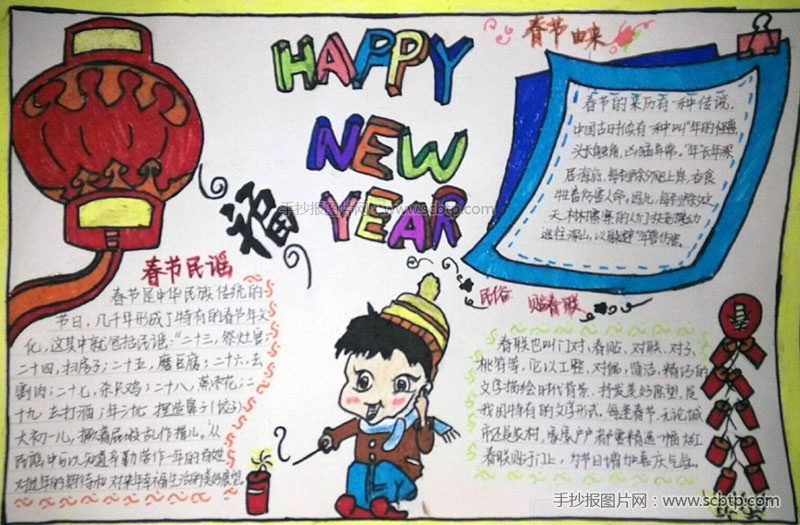 HAPPY
NEW
YEAR
福
春节由来
春节的来历有一种传说,
中国古时候有一种叫“年的怪兽,
头长触角,凶猛异常。“年长年深
居海底,每到除夕爬上岸,吞食
牲畜伤害人命。因此,每到除夕这
天,村村寨寨的人们扶老携幼
逃往深山,以躲避“年兽伤害。
手抄报图片网:www.scbtp.com
春节民谣
春节是中华民族传统的
节日,几千年形成了特有的春节年文
化,这其中就包括活谣:“二十三,祭灶官;
二十四,扫房子;二十五,磨豆腐;二十六,去
割肉;二十七,杀只鸡;二十八,蒸枣花;二
十九,去打酒;年三十儿 捏造鼻子(饺子)
大初一儿,撅着屁股乱作揖儿。从
民谣中可以知道辛勤劳作一年的百姓
对过年的期待和对来年幸福生活的美好展望。
民俗 贴春联
春联也叫门对、春贴、对联、对子、
桃符等,它以工整、对偶、简洁、精巧的
文字描绘时代背景,抒发美好愿望,是
我国特有的文字形式。每逢春节,无论城
市还是农村,家家户户都要精选一幅大红
春联贴于门上,为节日增加喜庆气氛。
手抄报图片网:www.scbtp.com